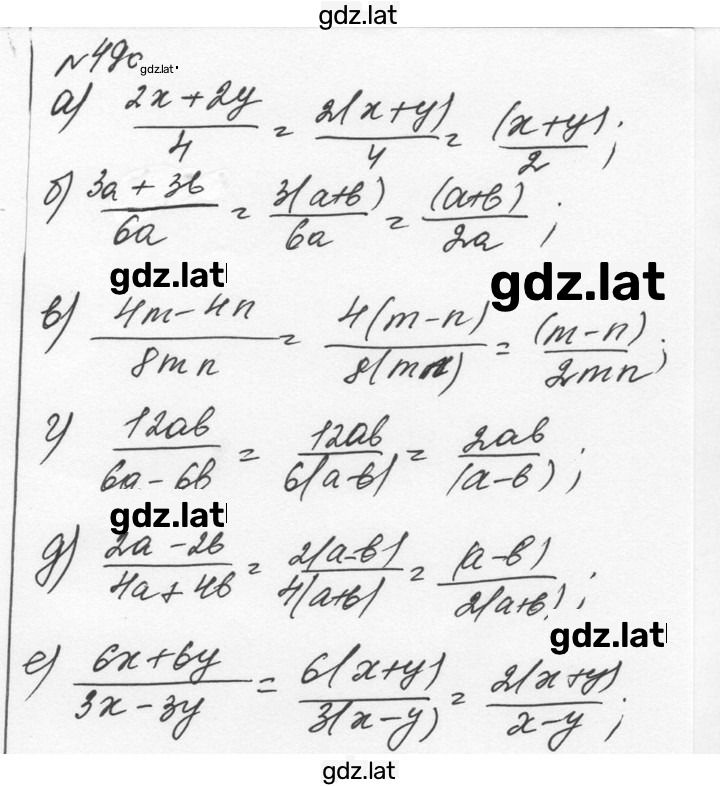 gdz.lat
№49
gdz.lat.
а) (2x + 2y)/4 = 2(x + y)/4 = (x + y)/2 ;
б) (3a + 3b)/6a = 3(a+b)/6a = (a+b)/2a ;
gdz.lat
gdz.lat
в) (4m - 4n)/8mn = 4(m - n)/8(mn) = (m - n)/2mn ;
г) 12ab/(6a - 6b) = 12ab/6(a-b) = 2ab/(a-b) ;
gdz.lat
д) (2a - 2b)/(4a + 4b) = 2(a-b)/4(a+b) = (a-b)/2(a+b) ;
gdz.lat
е) (6x + 6y)/(3x - 3y) = 6(x+y)/3(x-y) = 2(x+y)/(x-y) ;
gdz.lat